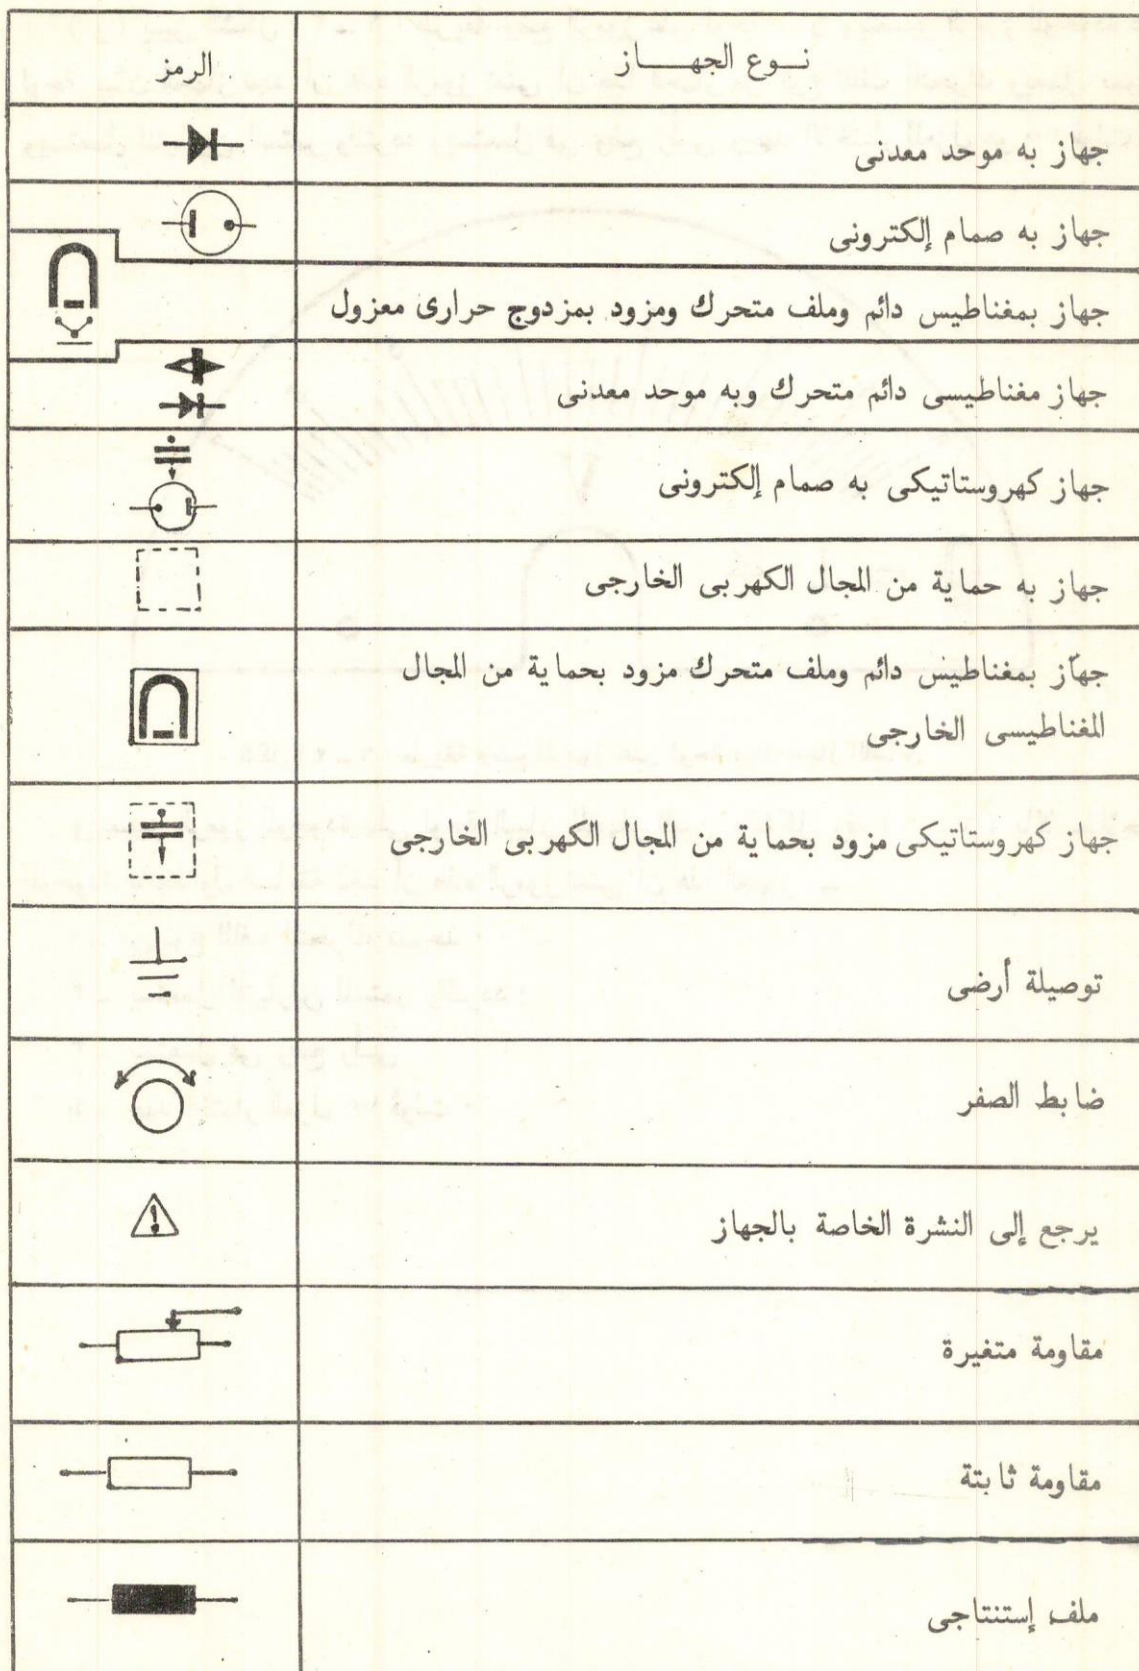 نوع الجهاز الرمز
جهاز به موحد معدنى
جهاز به صمام إلكترونى
جهاز بمغناطيس دائم وملف متحرك ومزود بمزدوج حرارى معزول
جهاز مغناطيسى دائم متحرك وبه موحد معدنى
جهاز كهروستاتيكى به صمام إلكترونى
جهاز به حماية من المجال الكهربى الخارجى
جهاز بمغناطيس دائم وملف متحرك مزود بحماية من المجال
المغناطيسى الخارجى
جهاز كهروستاتيكى مزود بحماية من المجال الكهربى الخارجى
توصيلة أرضى
ضابط الصفر
يرجع إلى النشرة الخاصة بالجهاز
مقاومة متغيرة
مقاومة ثابتة
ملف إستنتاجى